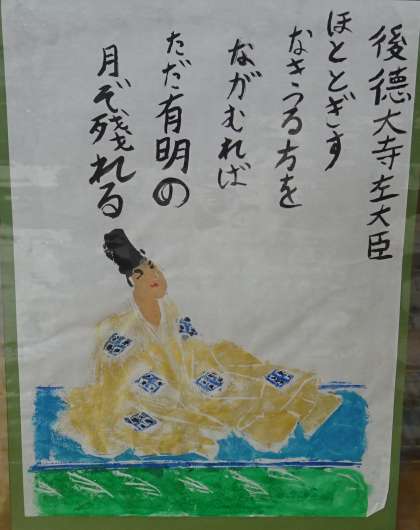 後徳大寺左大臣
ほととぎす
なきつる方を
ながむれば
ただ有明の
月ぞ残れる